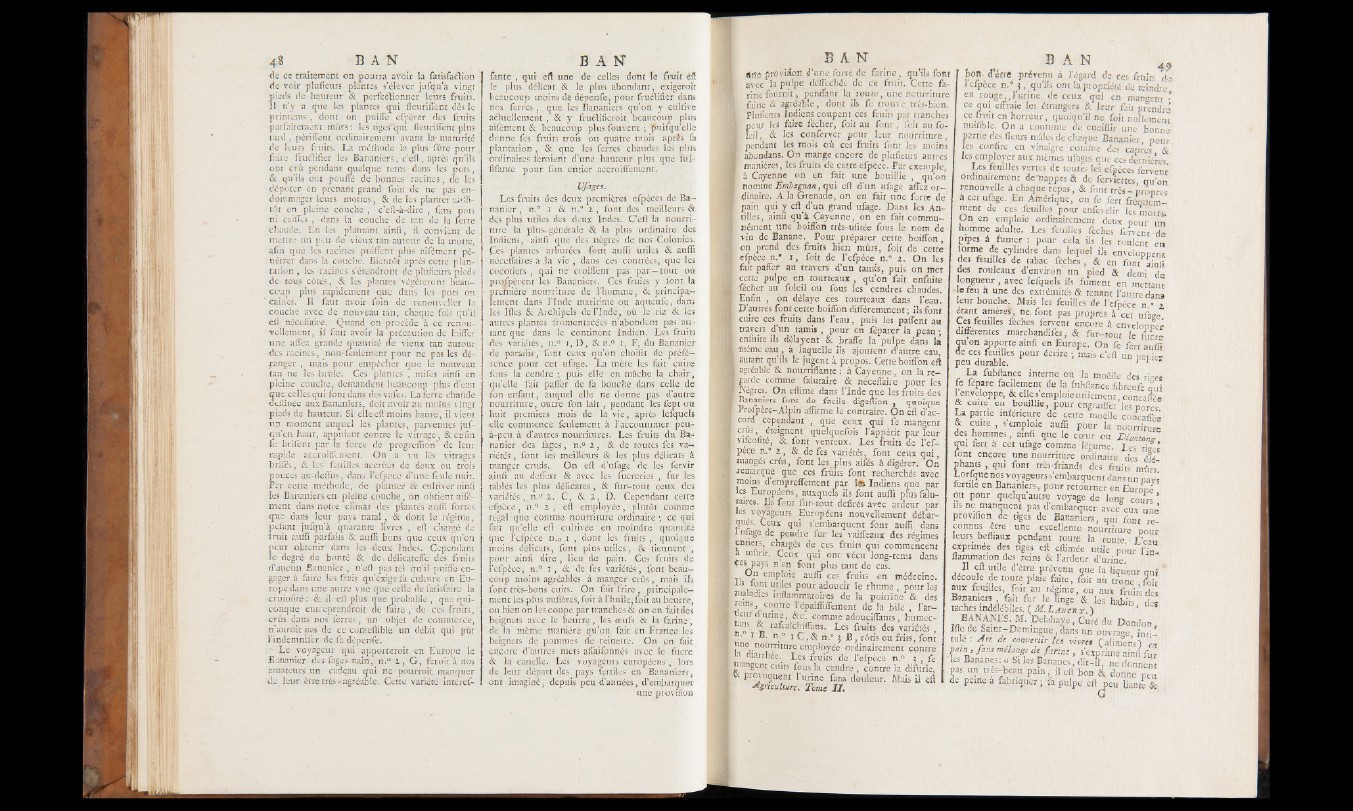 48 BAN
de ce traitement on pourra avoir la satisfaction
de voir plusieurs plantes s'élever jusqu'à vingt
pieds de hauteur & perfectionner leurs fruits.
Il n'y a que les plantes qui fleurissent dès le
printems, dont on puisse espérer des fruits
parfaitement mûrs: les tiges qui fleurissent plus
tard, périssent ordinairement avant la maturité
de leurs fruits. La méthode la plus sûre pour
faire fructifier les Bananiers, c'est, après qu'ils
ont crû pendant quelque tems dans les pots,
& qu'ils ont poussé de bonnes racines, de les
dépoter en prenant grand soin de ne pas en-
dommager leurs mottes, & de les planter aussi-
tôt en pleine couche, c'est-à-dire, sans pots
ni caisses, dans la couche de tan de la serre
chaude. En les plantant ainsi, il convient de
mettre un peu de vieux tan autour de la motte,
afin que les racines puissent plus aisément pé-
nétrer dans la couche. Bientôt après cette plan-
tation, les racines s'étendront de plusieurs pieds
de tous côtés, & les plantes végéteront beau-
coup plus rapidement que dans les pots ou
caisses. Il faut avoir soin de renouveller la
couche avec de nouveau tan, chaque fois qu'il
est nécessaire. Quand on procède à ce renou-
vellement, il faut avoir la précaution de laisser
une assez grande quantité de vieux tan autour
des racines, non-seulement pour ne pas les dé-
ranger, mais pour empêcher que le nouveau
tan ne les brûle. Ces plantes, mises ainsi en
pleine couche, demandent beaucoup plus d'eau
que celles qui sont dans des vases. La serre chaude
destinée aux Bananiers, doit avoir au moins vingt
pieds de hauteur. Si elle est moins haute, il vient
un moment auquel les plantes, parvenues jus-
qu'en haut, appuient contre le vitrage, & enfin
le brisent par la force de progression de leur
rapide accroissement. On a vu les vitrages
brisés, & les feuilles accrûes de deux ou trois
pouces au-dessus, dans l'espace d'une seule nuit.
Par cette méthode, de planter & cultiver ainsi
les Bananiers en pleine couche, on obtient aisé-
ment dans notre climat des plantes aussi fortes
que dans leur pays natal, & dont le régime,
pesant jusqu'à quarante livres, est chargé de
fruit aussi parfaits & aussi bons que ceux qu'on
peut obtenir dans les deux Indes. Cependant
le degré de bonté & de délicatesse des fruits
d'aucun Bananier, n'est pas tel qu'il puisse en-
gager à faire les frais qu'exige sa culture en Eu-
rope dans une autre vue que celle de satisfaire la
curiosité: & il est plus que probable, que qui-
conque entreprendroit de faire, de ces fruits,
crûs dans nos serres, un objet de commerce,
n'auroit pas de ce comestible un débit qui pût
l'indemniser de sa dépense.
Le voyageur qui apporteroit en Europe le
Bananier des sages nain, n.° 2, G, feroit à nos
amateurs un cadeau qui ne pourroit manquer
de leur être très-agréable. Cette variété intéres-
BAN
sante, qui est une de celles dont le fruit est
le plus délicat & le plus abondant, exigeroit
beaucoup moins de dépense, pour fructifier dans
nos serres, que les Bananiers qu'on y cultive
actuellement, & y fructifieroit beaucoup plus
aisément & beaucoup plus souvent; puisqu'elle
donne ses fruits trois ou quatre mois après sa
plantation, & que les serres chaudes les plus
ordinaires seroient d'une hauteur plus que suf-
fisante pour son entier accroissement.
Usages.
Les fruits des deux premières espèces de Ba-
nanier, n.° 1 & n.° 2, sont des meilleurs &
des plus utiles des deux Indes. C'est la nourri-
ture la plus générale & la plus ordinaire des
Indiens, ainsi que des nègres de nos Colonies.
Ces plantes arborées sont aussi utiles & aussi
nécessaires à la vie, dans ces contrées, que les
cocotiers, qui ne croissent pas par-tout où
prospèrent les Bananiers. Ces fruits y sont la
première nourriture de l'homme, & principa-
lement dans l'Inde maritime ou aqueuse, dans
les Isles & Archipels de l'Inde, où le riz & les
autres plantes fromentacées n'abondent pas au-
tant que dans le continent Indien. Les fruits
des variétés, n.° 1, D, & n.° 1, F, du Bananier
de paradis, sont ceux qu'on choisit de préfé-
rence pour cet usage. La mère les fait cuire
sous la cendre; puis elle en mâche la chair,
qu'elle fait passer de sa bouche dans celle de
son enfant, auquel elle ne donne pas d'autre
nourriture, outre son lait, pendant les sept ou
huit premiers mois de sa vie, après lesquels
elle commence seulement à l'accoutumer peu-
à-peu à d'autres nourritures. Les fruits du Ba-
nanier des sages, n.° 2, & de toutes ses va-
riétés, sont les meilleurs & les plus délicats à
manger cruds. On est d'usage de les servir
ainsi au dessert & avec les sucreries, sur les
tables les plus délicates, & sur-tout ceux des
variétés, n.° 2, C, & 2, D. Cependant cette
espèce, n.° 2, est employée, plutôt comme
régal que comme nourriture ordinaire; ce qui
fait qu'elle est cultivée en moindre quantité
que l'espèce n.° 1, dont les fruits, quoique
moins délicats, sont plus utiles, & tiennent,
pour ainsi dire, lieu de pain. Ces fruits de
l'espèce, n.° 1, & de ses variétés, sont beau-
coup moins agréables à manger crûs, mais ils
sont très-bons cuits. On fait frire, principale-
ment les plus mûres, soit à l'huile, soit au beurre,
ou bien on les coupe par tranches & on en fait des
beignets avec le beurre, les œufs & la farine,
de la même manière qu'on fait en France les
beignets de pommes de reinette. On en fait
encore d'autres mets assaisonnés avec le sucre
& la canelle. Les voyageurs européens, lors
de leur départ des pays fertiles en Bananiers,
ont imaginé, depuis peu d'années, d'embarquer
une provision
BAN
une provision d'une sorte de farine, qu'ils font
avec la pulpe desséchée de ce fruit. Cette fa-
rine fournit, pendant la route, une nourriture
saine & agréable, dont ils se trouve très-bien.
Plusieurs Indiens coupent ces fruits par tranches
pour les faire sécher, soit au four, soit au so-
leil, & les conserver pour leur nourriture,
pendant les mois où ces fruits sont les moins
abondans. On mange encore de plusieurs autres
manières, les fruits de cette espèce. Par exemple,
à Cayenne on en fait une bouillie, qu'on
nomme Embagnan, qui est d'un usage assez or-
dinaire. A la Grenade, on en fait une sorte de
pain qui y est d'un grand usage. Dans les An-
tilles, ainsi qu'à Cayenne, on en fait commu-
nément une boisson très-usitée sous le nom de
vin de Banane. Pour préparer cette boisson,
on prend des fruits bien mûrs, soit de cette
espèce n.° 1, soit de l'espèce n.° 2. On les
fait passer au travers d'un tamis, puis on met
cette pulpe en tourteaux, qu'on fait ensuite
sécher au soleil ou sous les cendres chaudes.
Enfin, on délaye ces tourteaux dans l'eau.
D'autres font cette boisson différemment; ils font
cuire ces fruits dans l'eau, puis les passent au
travers d'un tamis, pour en séparer la peau;
ensuite ils délayent & brasse la pulpe dans la
même eau, à laquelle ils ajoutent d'autre eau,
autant qu'ils le jugent à propos. Cette boisson est
agréable & nourrissante: à Cayenne, on la re-
garde comme salutaire & nécessaire pour les
Nègres. On estime dans l'Inde que les fruits des
Bananiers sont de facile digestion, quoique
Prosper-Alpin affirme le contraire. On est d'ac-
cord cependant, que ceux qui se mangent
crûs, éteignent quelquefois l'appétit par leur
viscosité, & sont venteux. Les fruits de l'es-
pèce n.° 2, & de ses variétés, sont ceux qui,
mangés crûs, sont les plus aisés à digérer. On
remarque que ces fruits sont recherchés avec
moins d'empressement par les Indiens que par
les Européens, auxquels ils sont aussi plus salu-
taires. Ils sont sur-tout desirés avec ardeur par
les voyageurs Européens nouvellement débar-
qués. Ceux qui s'embarquent sont aussi dans
l'usage de pendre sur les vaisseaux des régimes
entiers, chargés de ces fruits qui commencent
à mûrir. Ceux qui ont vécu long-tems dans
ces pays n'en font plus tant de cas.
On emploie aussi ces fruits en médecine.
Ils sont utiles pour adoucir le rhume, pour les
maladies inflammatoires de la poitrine & des
reins, contre l'épaississement de la bile, l'ar-
deur d'urine, &c. comme adoucissans, humec-
tans & rafraîchissans. Les fruits des variétés,
n.° 1 B, n.° 1 C, & n.° 3 B, rôtis ou frits, font
une nourriture employée ordinairement contre
la diarrhée. Les fruits de l'espèce n.° 2, se
mangent cuits sous la cendre, contre la disurie,
& provoquent l'urine sans douleur. Mais il est
Agriculture. Tome II.
BAN 49
bon d'être prévenu à l'égard de ces fruits de
l'espèce n.° 3, qu'ils ont la propriété de teindre,
en rouge, l'urine de ceux qui en mangent;
ce qui effraie les étrangers & leur fait prendre
ce fruit en horreur, quoiqu'il ne soit nullement
nuisible. On a coutume de cueillir une bonne
partie des fleurs mâles de chaque Bananier, pour
les confire en vinaigre comme des capres, &
les employer aux mêmes usages que ces dernières.
Les feuilles vertes de toutes les espèces servent
ordinairement de nappes & de serviettes, qu'on
renouvelle à chaque repas, & sont très-propres
à cet usage. En Amérique, on se sert fréquem-
ment de ces feuilles pour ensevelir les morts.
On en emploie ordinairement deux pour un
homme adulte. Les feuilles sèches servent de
pipes à fumer: pour cela ils les roulent en
forme de cylindre dans lequel ils enveloppent
des feuilles de tabac sèches, & en font ainsi
des rouleaux d'environ un pied & demi de
longueur, avec lesquels ils fument en mettant
le feu à une des extrémités & tenant l'autre dans
leur bouche. Mais les feuilles de l'espèce n.° 2
étant amères, ne sont pas propres à cet usage.
Ces feuilles sèches servent encore à envelopper
différentes marchandises, & sur-tout le sucre
qu'on apporte ainsi en Europe. On se sert aussi
de ces feuilles pour écrire; mais c'est un papier
peu durable.
La substance interne ou la moëlle des tiges
se sépare facilement de la substance fibreuse qui
l'enveloppe, & elle s'emploie utilement, concassée
& cuite en bouillie, pour engraisser les porcs.
La partie inférieure de cette moëlle concassée
& cuite, s'emploie aussi pour la nourriture
des hommes, ainsi que le cœur ou Diantong,
qui sert à cet usage comme légume. Les tiges
sont encore une nourriture ordinaire des élé-
phants, qui sont très-friands des fruits mûrs.
Lorsque nos voyageurs s'embarquent dans un pays
fertile en Bananiers, pour retourner en Europe,
ou pour quelqu'autre voyage de long cours,
ils ne manquent pas d'embarquer avec eux une
provision de tiges de Bananiers, qui sont re-
connus être une excellente nourriture pour
leurs bestiaux pendant toute la route. L'eau
exprimée des tiges est estimée utile pour l'in-
flammation des reins & l'ardeur d'urine.
Il est utile d'être prévenu que la liqueur qui
découle de toute plaie faite, soit au tronc, soit
aux feuilles, soit au régime, ou aux fruits des
Bananiers, fait sur le linge & les habits, des
taches indélébiles. (M. LANCRY.)
BANANES. M. Delahaye, Curé du Dondon,
Isle de Saint-Domingue, dans un ouvrage, inti-
tulé: Art de convertir les vivres (alimens) en
pain, sans mélange de farine, s'exprime ainsi sur
les Bananes: « Si les Bananes, dit-il, ne donnent
pas un très-beau pain, il est bon & donne peu
de peine à fabriquer; sa pulpe est peu liante &
G